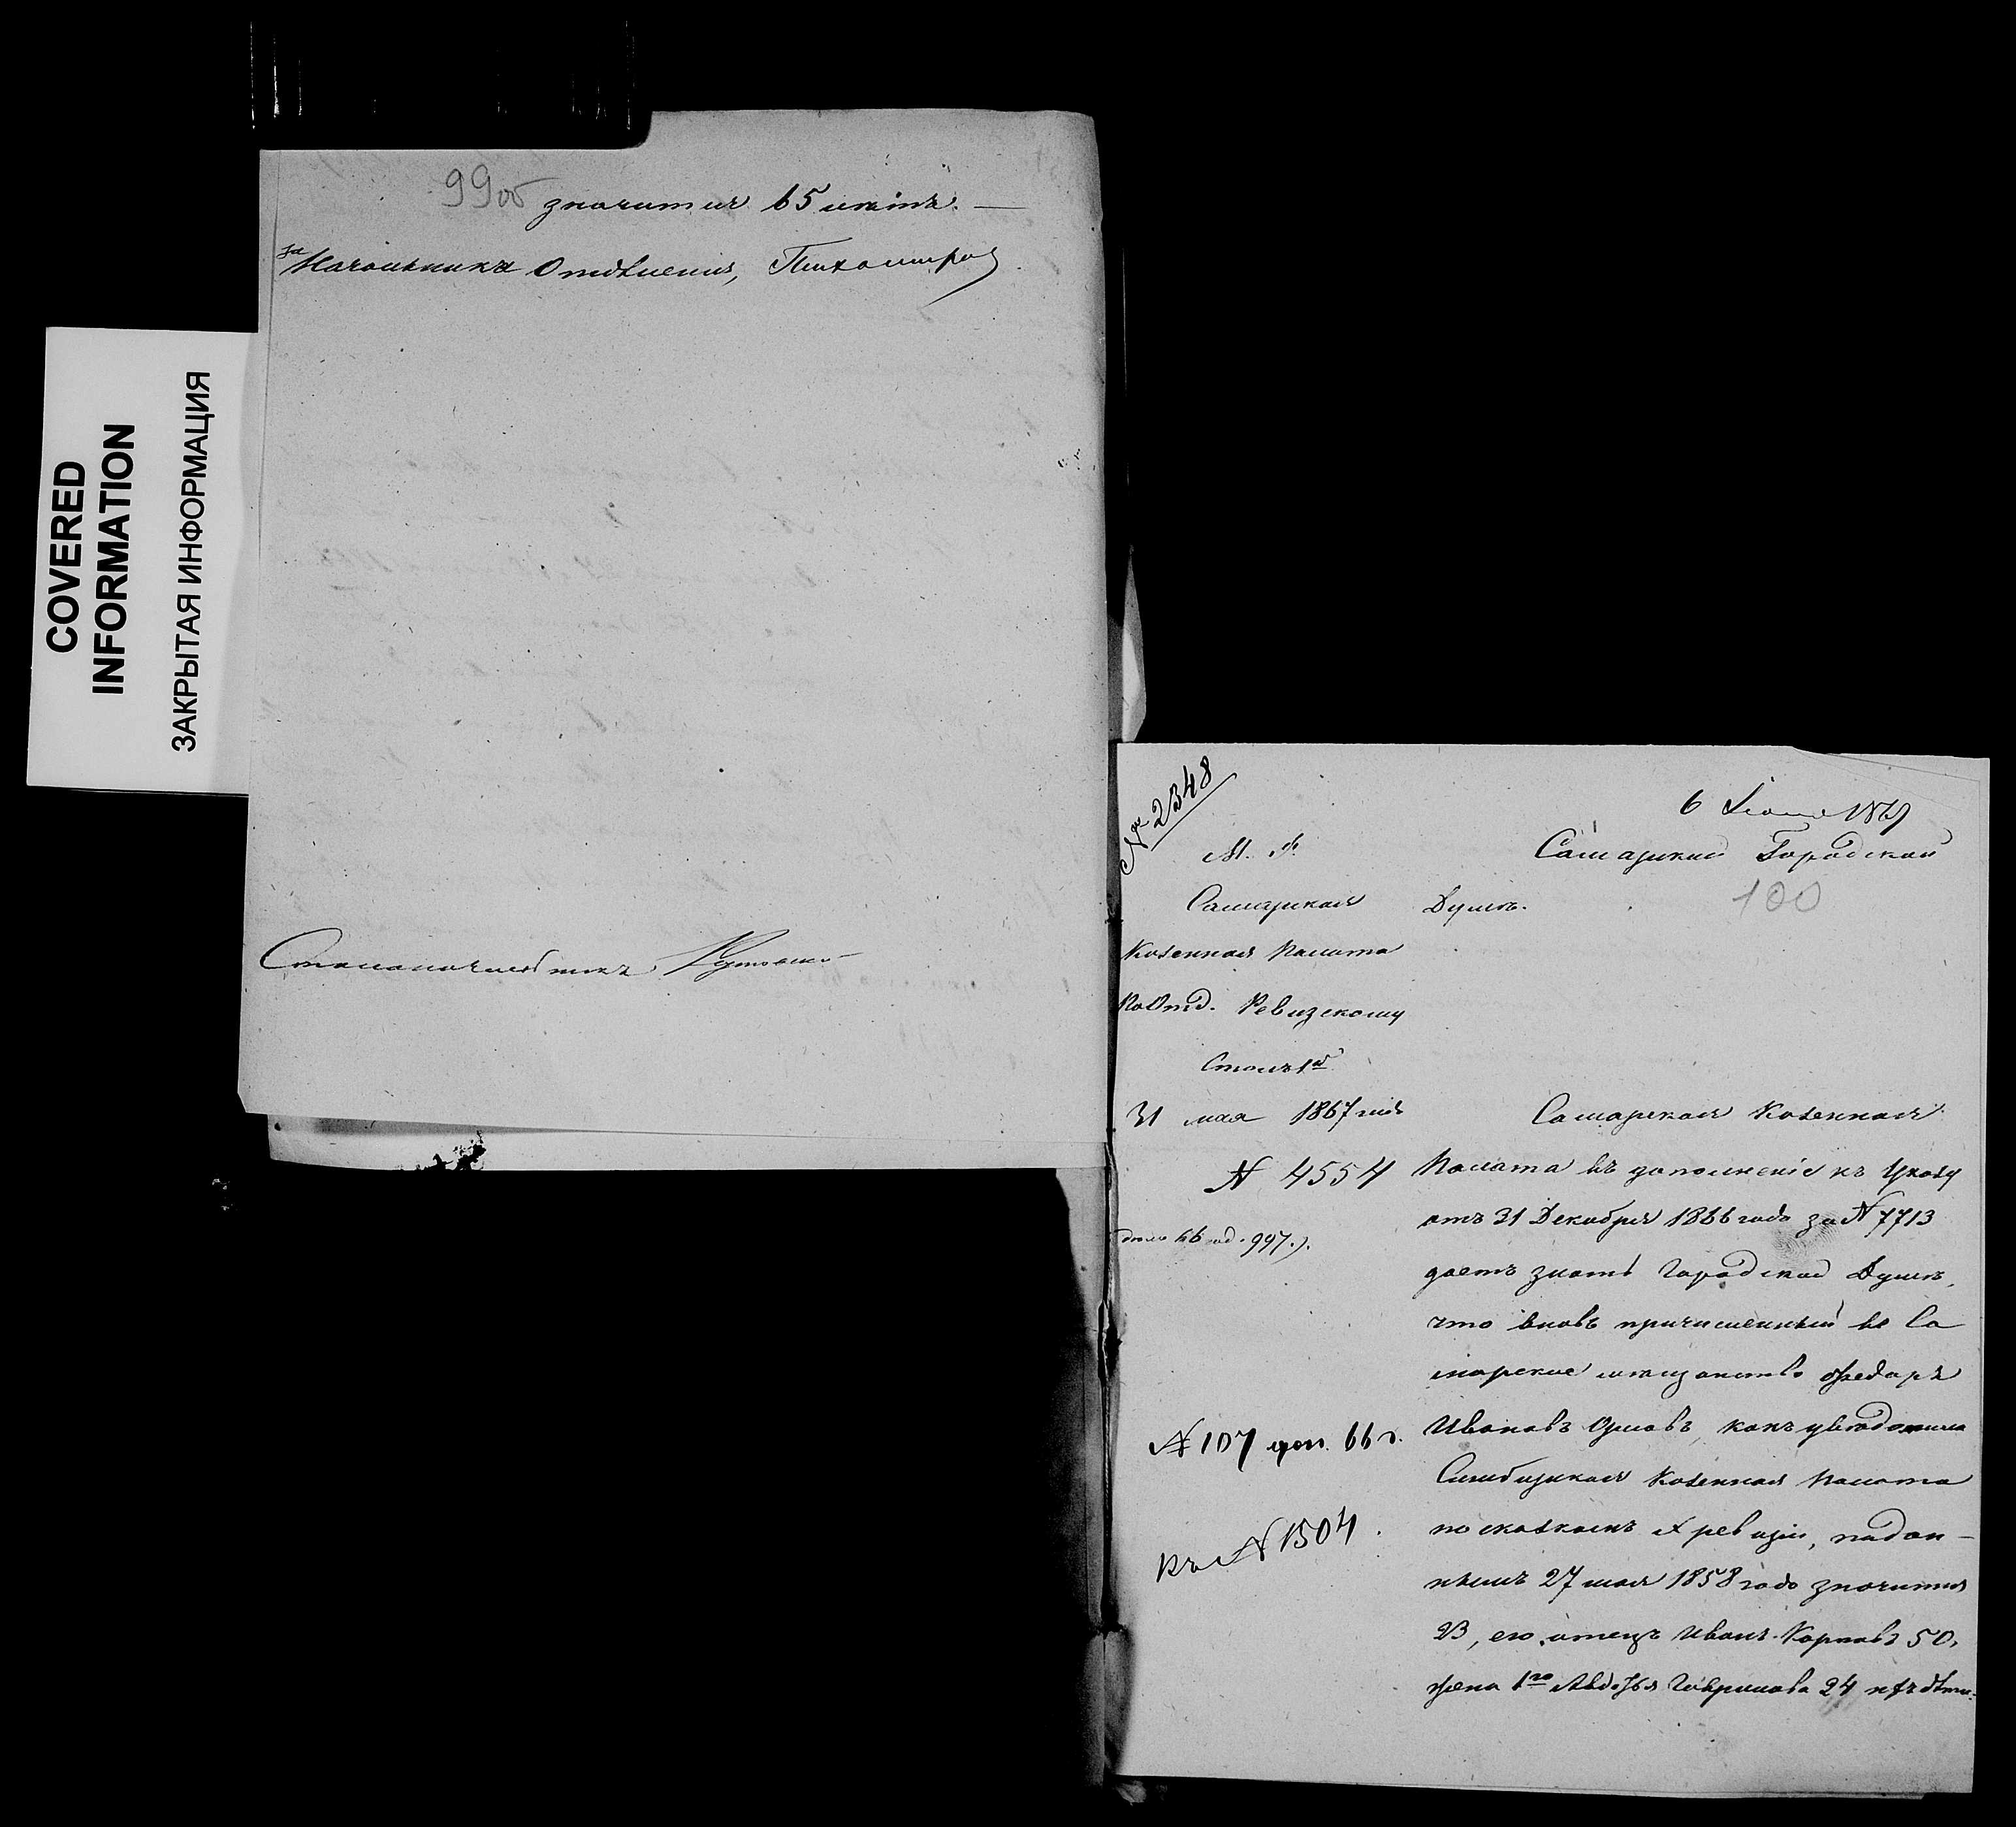 COVERED
INFORMATION
ЗАКРЫТАЯ ИНФОРМАЦИЯ
99об
значится 65 лѣтъ. —
за Начальника Отдѣленія, Тихомиров
Столоначальникъ
№ 2348
6 Іюня 1867
М. Ф.
Самарская
Казенная Палата
По Отд. Ревизскому
Столъ 1й
31 мая 1867 года
N 4554
дѣло 66 год. 997.).
N 107 доп. 66 г.
Къ N 1504.
Самарской Городской
100
Думѣ.
Самарская Казенная
Палата въ дополненіе къ Указу
отъ 31 Декабря 1866 года за N 7713
даетъ знать Городской Думѣ,
что вновь причисленный въ Са
марское мѣщанство Федоръ
Ивановъ Орловъ, какъ увѣдомила
Симбирская Казенная Палата
по сказкамъ X ревизіи, подан-
нымъ 27 мая 1858 года значится
23, его отецъ Иванъ Карповъ 50,
жена 1го Авдотья Гаврилова 24 лѣтъ дѣти: